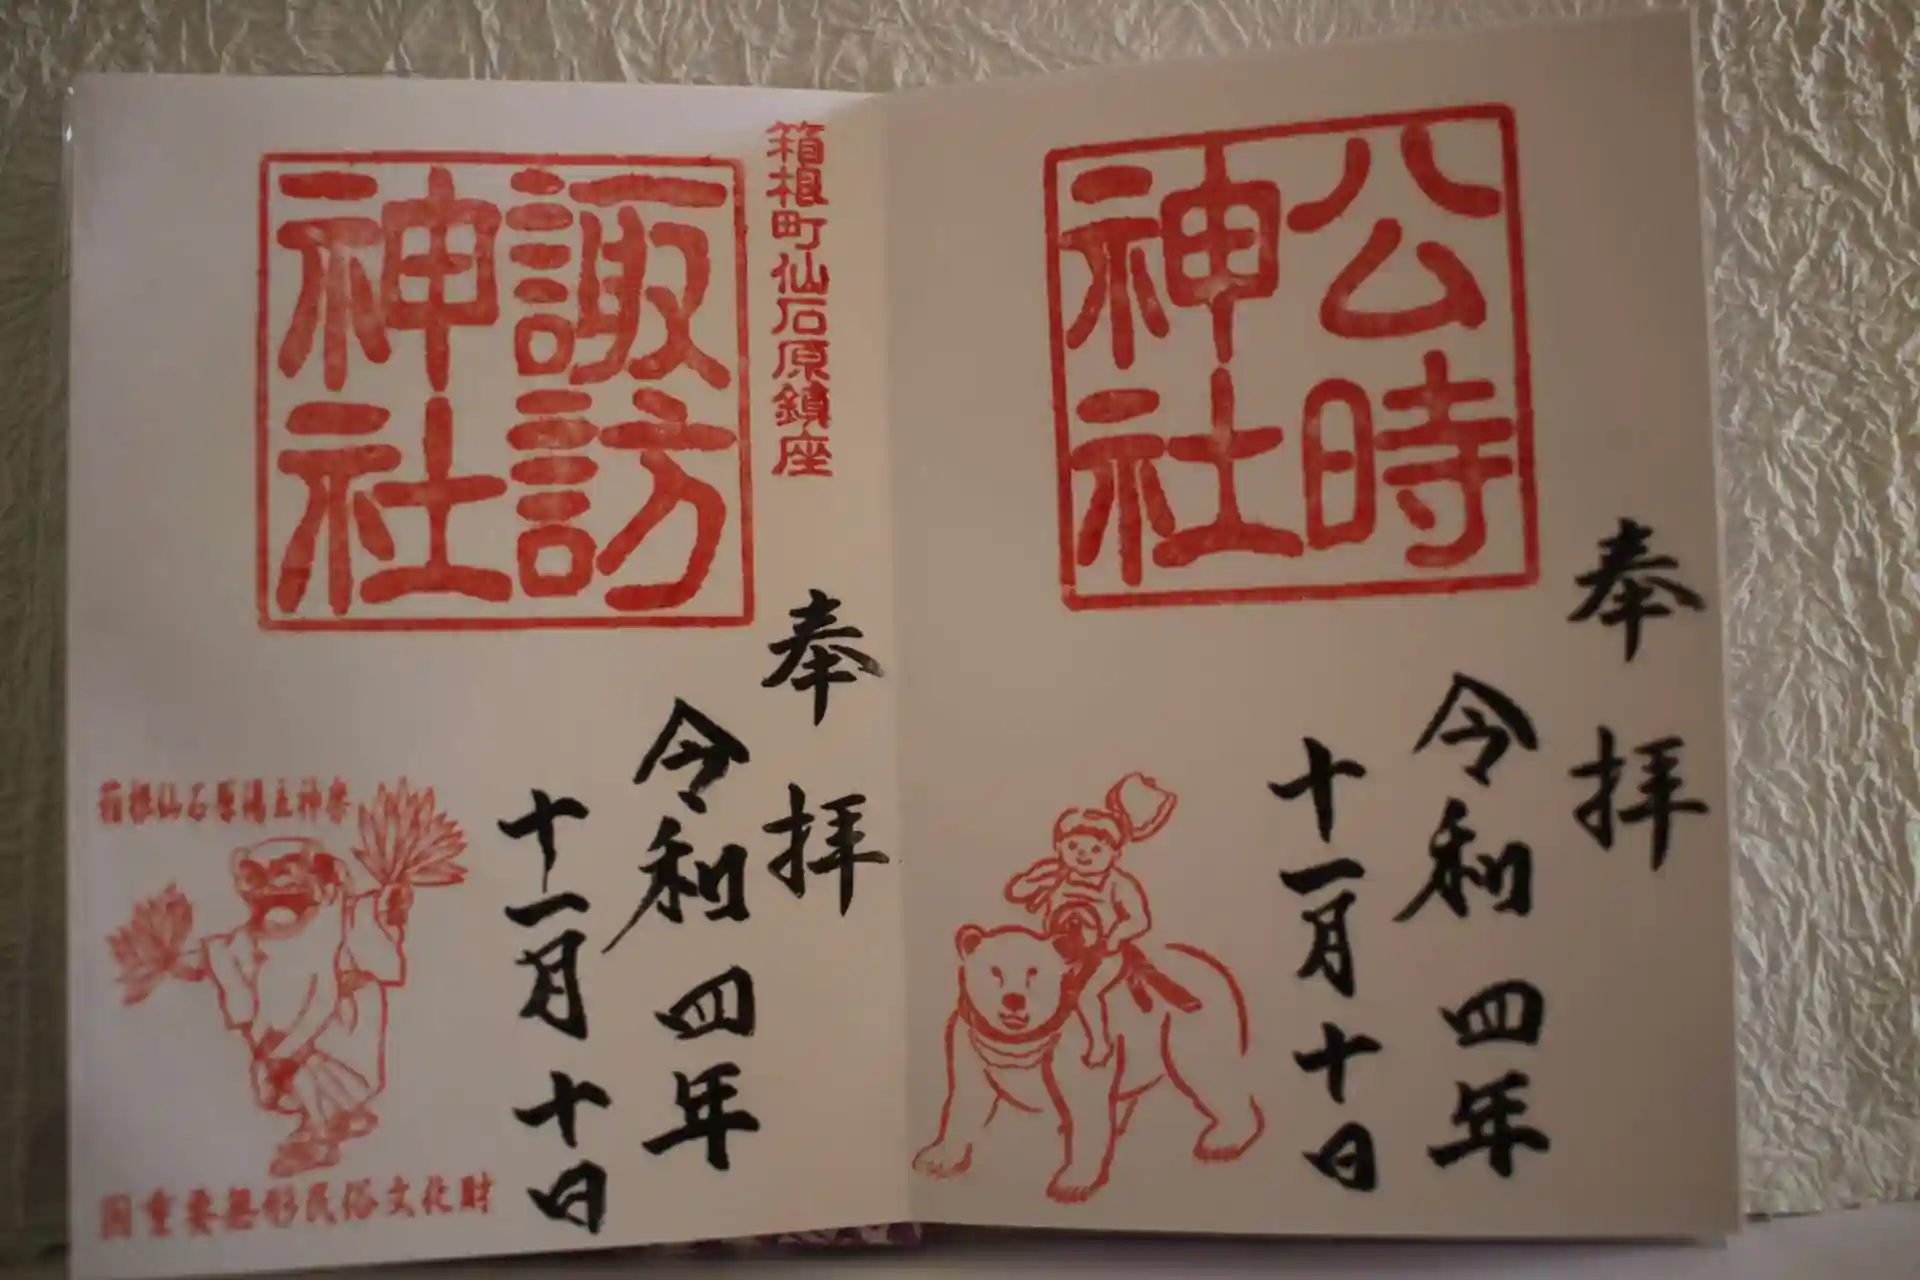 公時
神社
奉拝
令和四年
十一月十日
箱根町仙石原鎮座
諏訪
神社
奉拝
令和四年
十一月十日
箱根仙石原湯立神楽
国重要無形民俗文化財